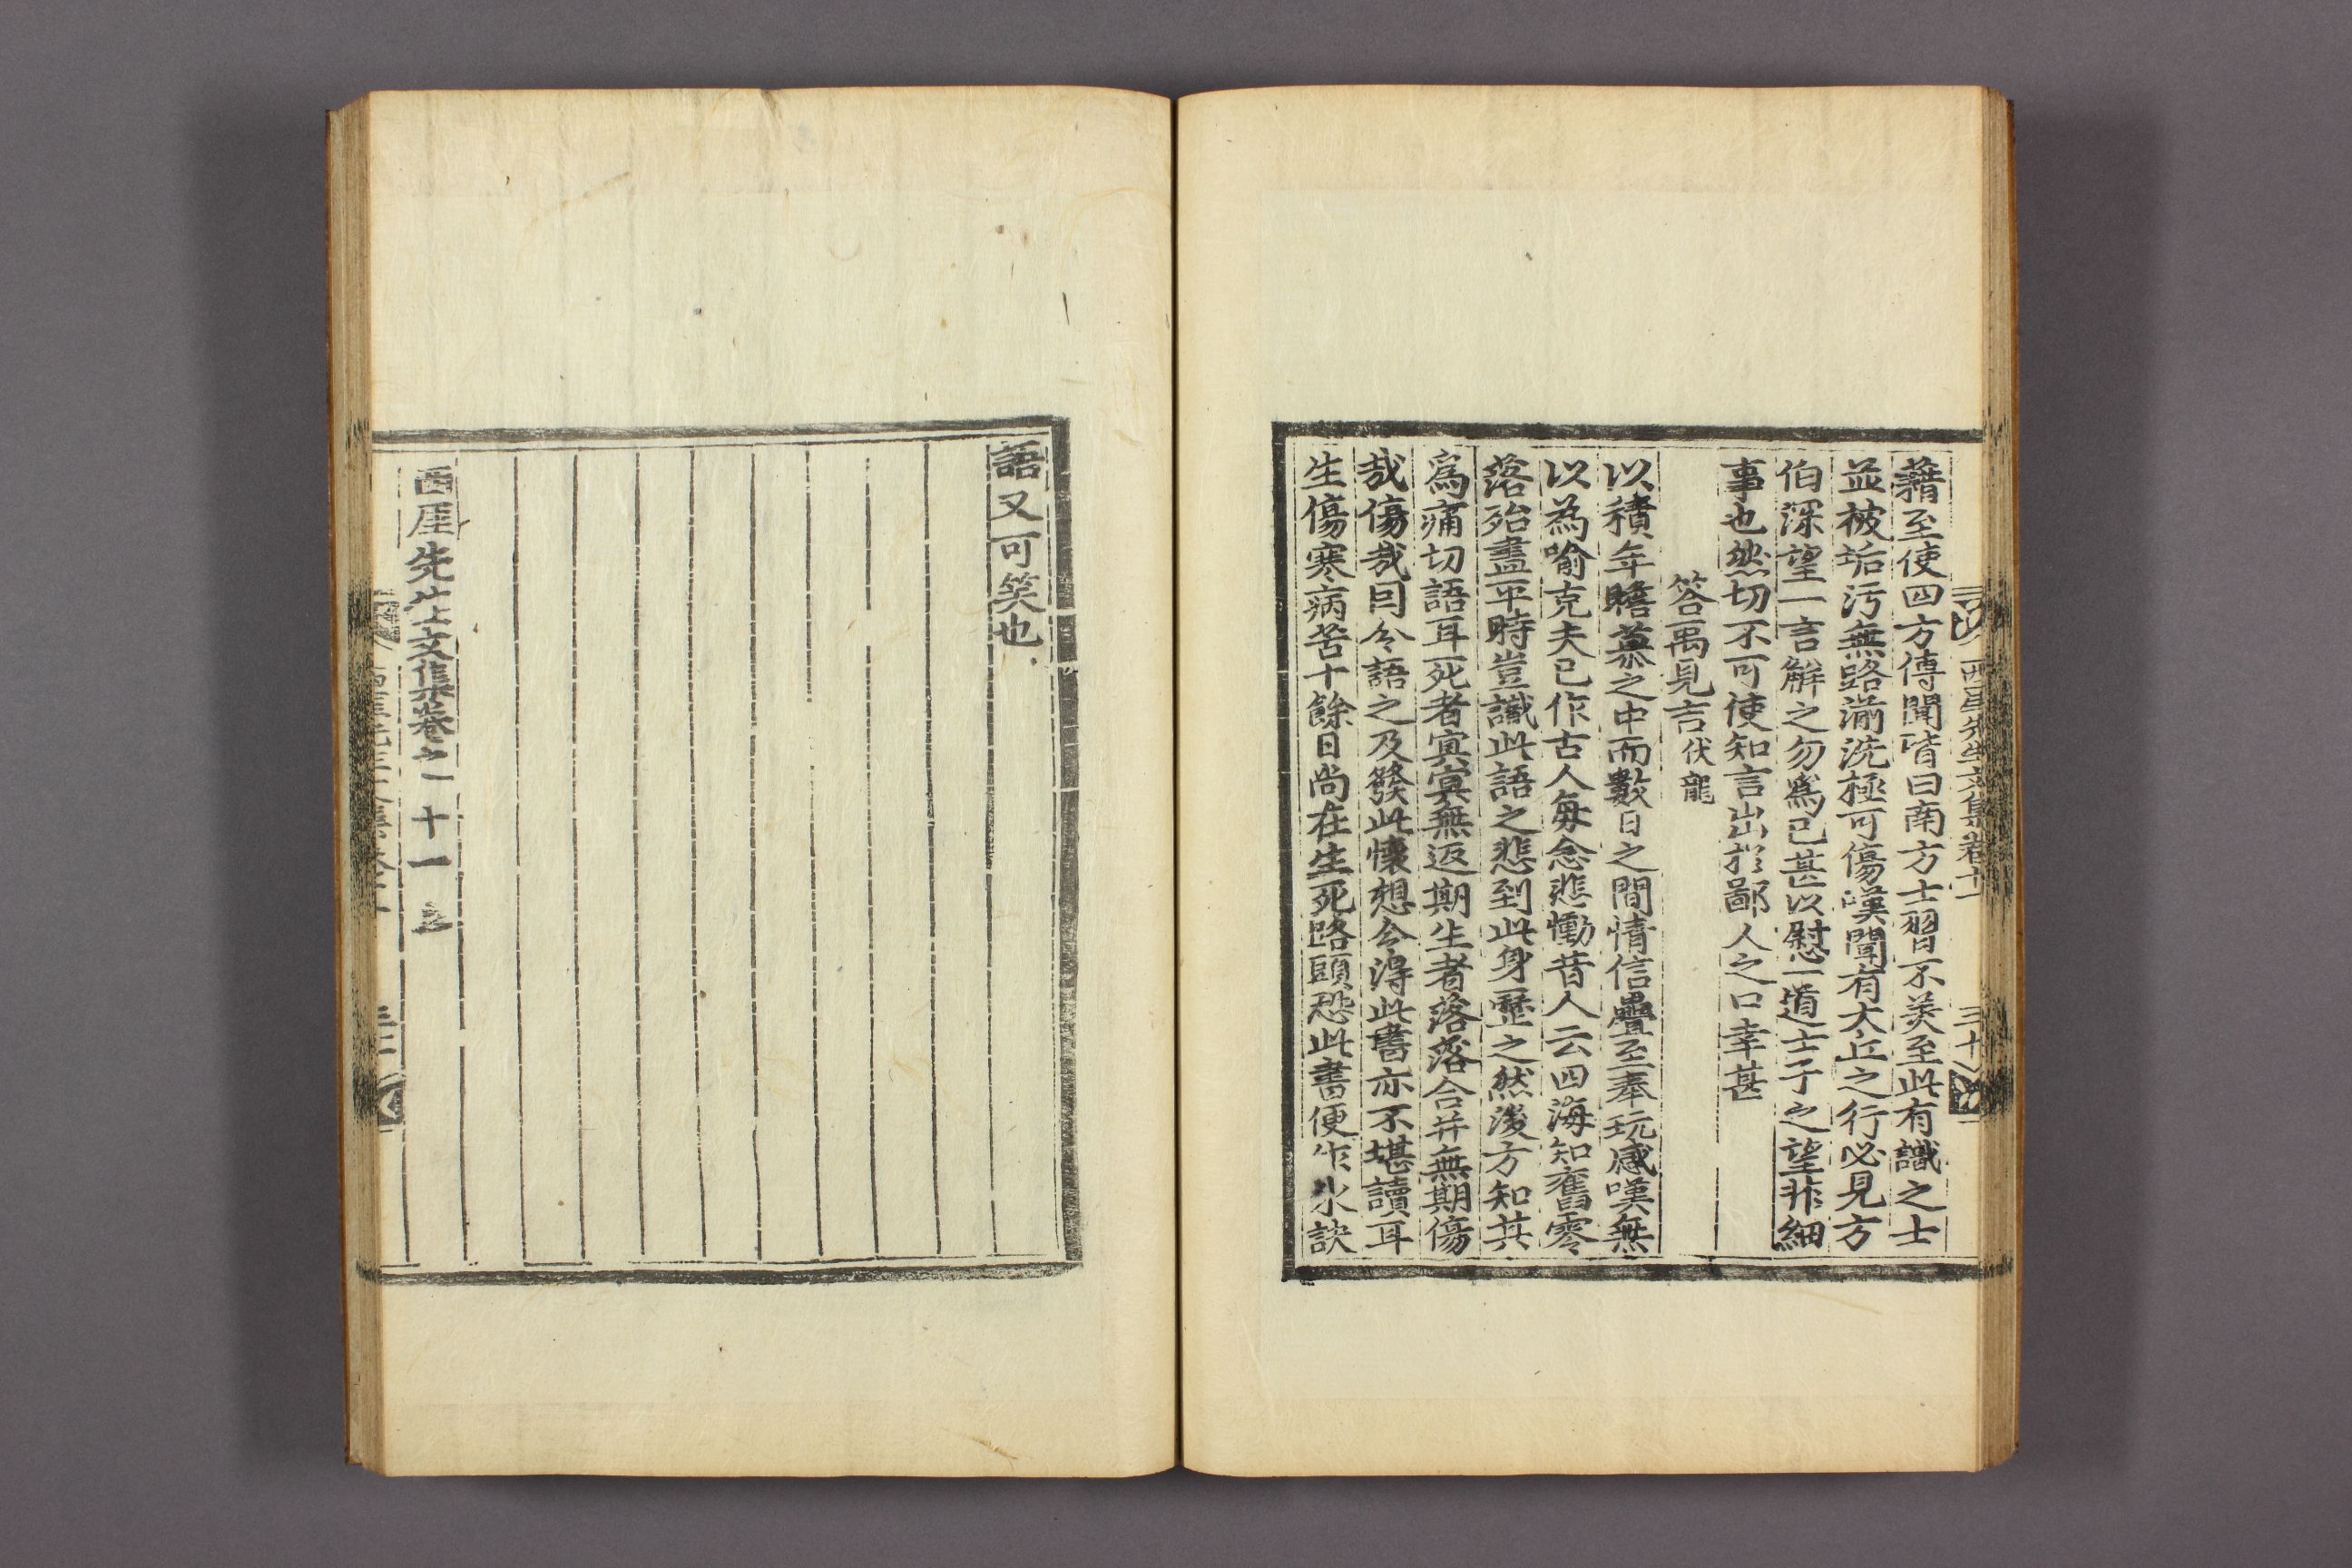 西厓先生文集卷十一 三十
藉至使四方傳聞皆曰南方士習不美至此有識之士
並被垢汚無路湔洗極可傷嘆聞有大丘之行必見方
伯深望一言解之勿爲已甚以慰一道士子之望非細
事也然切不可使知言出於鄙人之口幸甚
答禹見吉伏龍
以積年瞻慕之中而數日之間情信疊至奉玩感嘆無
以為喻克夫已作古人每念悲慟昔人云四海知舊零
落殆盡平時豈識此語之悲到此身歷之然後方知其
爲痛切語耳死者冥冥無返期生者落落合并無期傷
哉傷哉囙令語之及發此懷想令得此書亦不堪讀耳
生傷寒病苦十餘日尚在生死路頭恐此書便作永訣
語又可笑也
西厓先生文集卷之十一